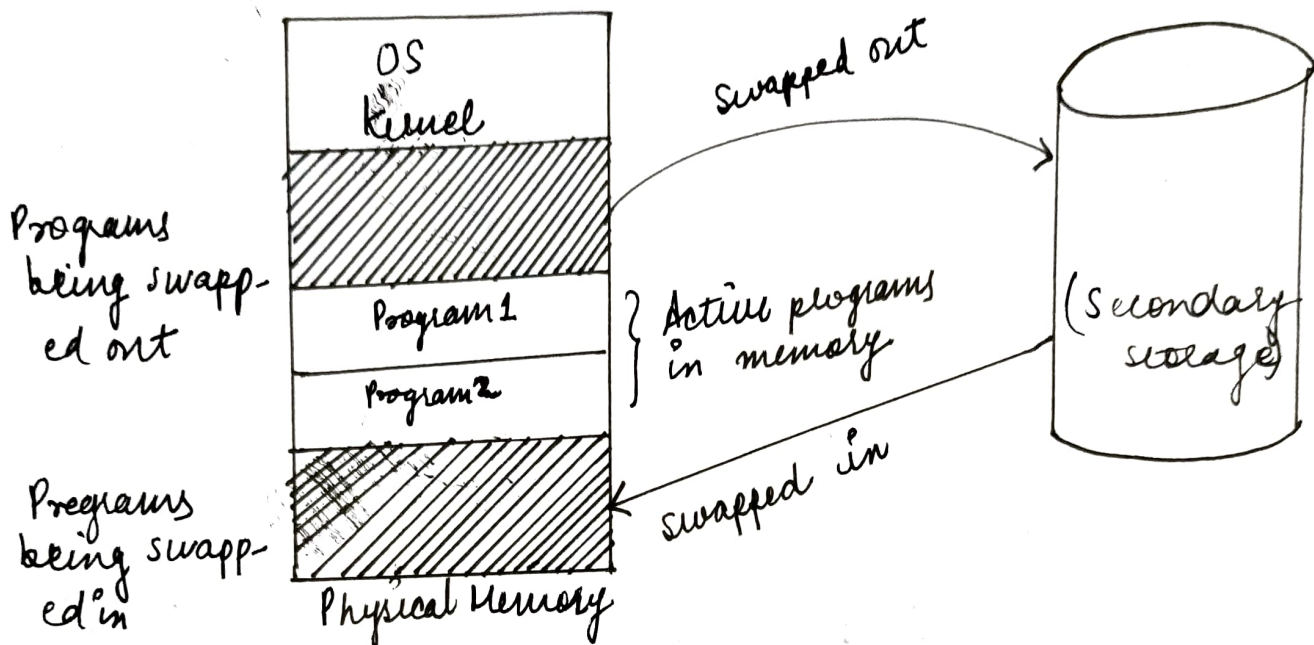 OS
Kernel
swapped out
Programs
being swapp-
ed out
Program 1
Program 2
} Active programs
in memory.
(Secondary
storage)
swapped in
Programs
being swapp-
ed in
Physical Memory